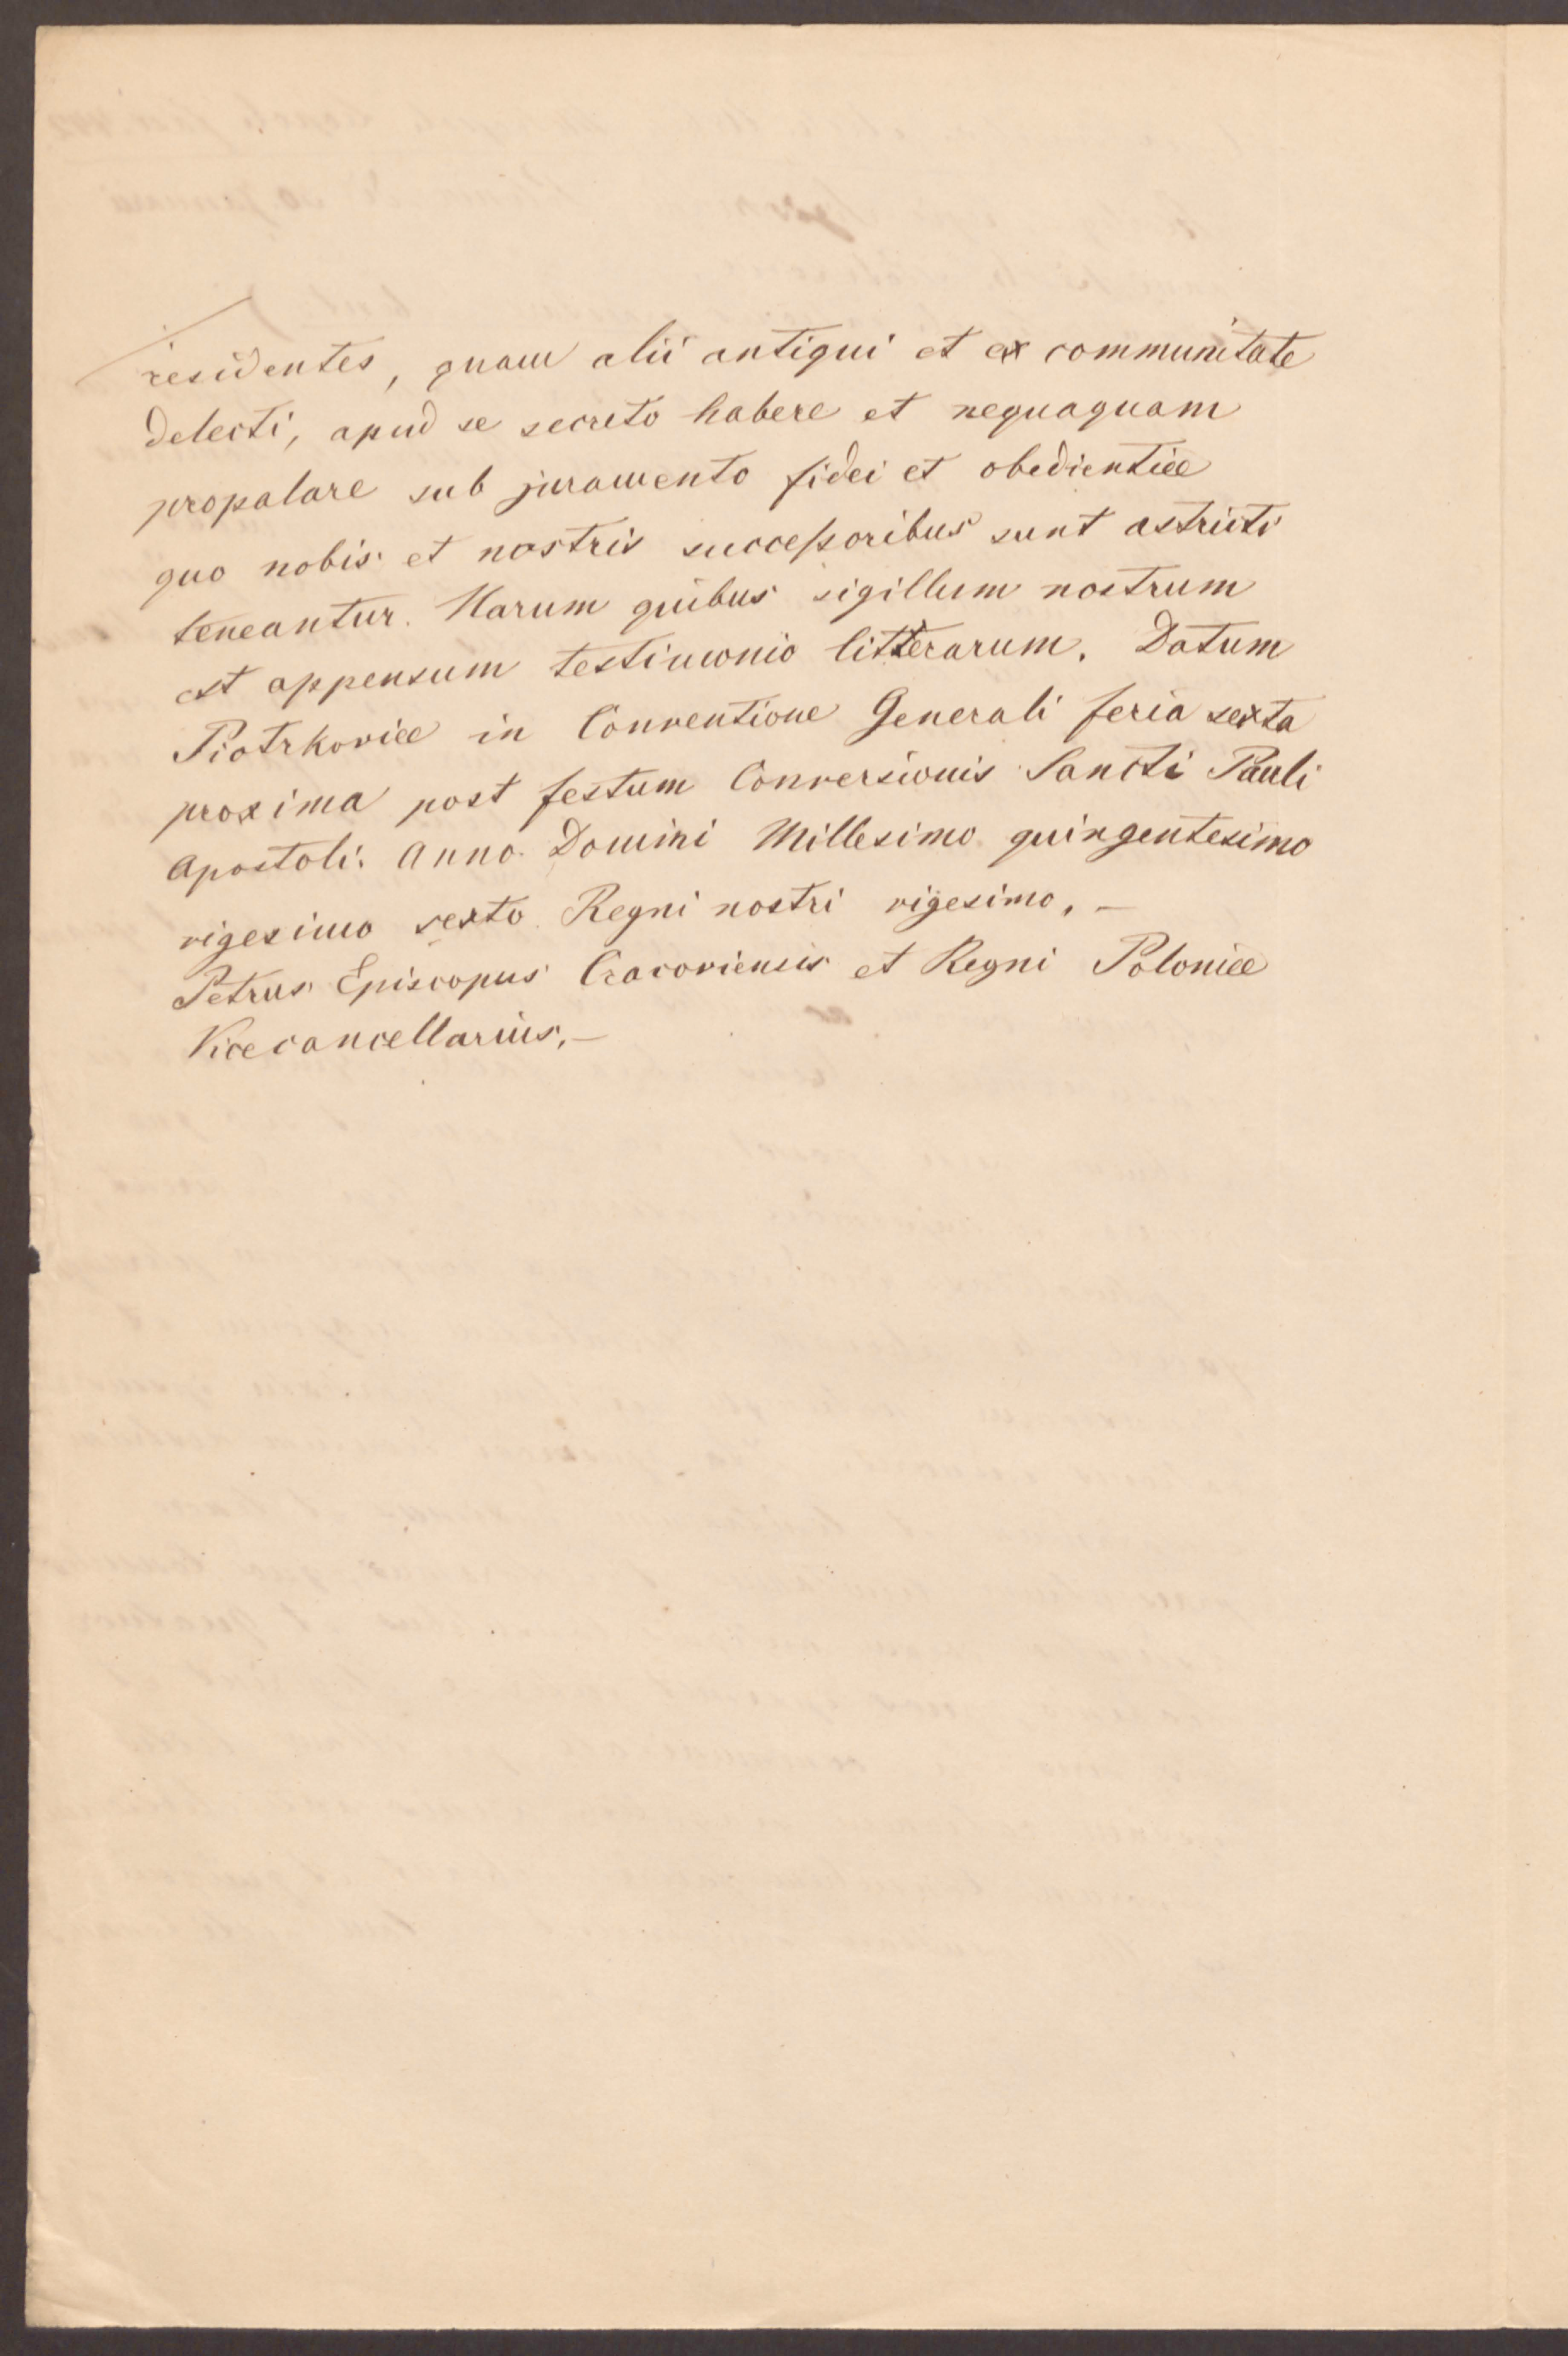 residentes, quam alii antiqui et ex communitate
delecti, apud se secreto habere et nequaquam
propalare sub juramento fidei et obedientiæ
quo nobis et nostris successoribus sunt astricti
teneantur. Harum quibus sigillum nostrum
est appensum testimonio litterarum. Datum
Piotrkoviæ in Conventione Generali feria sexta
proxima post festum Conversionis Sancti Pauli
Apostoli. Anno Domini Millesimo quingentesimo
vigesimo sexto Regni nostri vigesimo. –
Petrus Episcopus Cracoviensis et Regni Poloniæ
Vicecancellarius. –